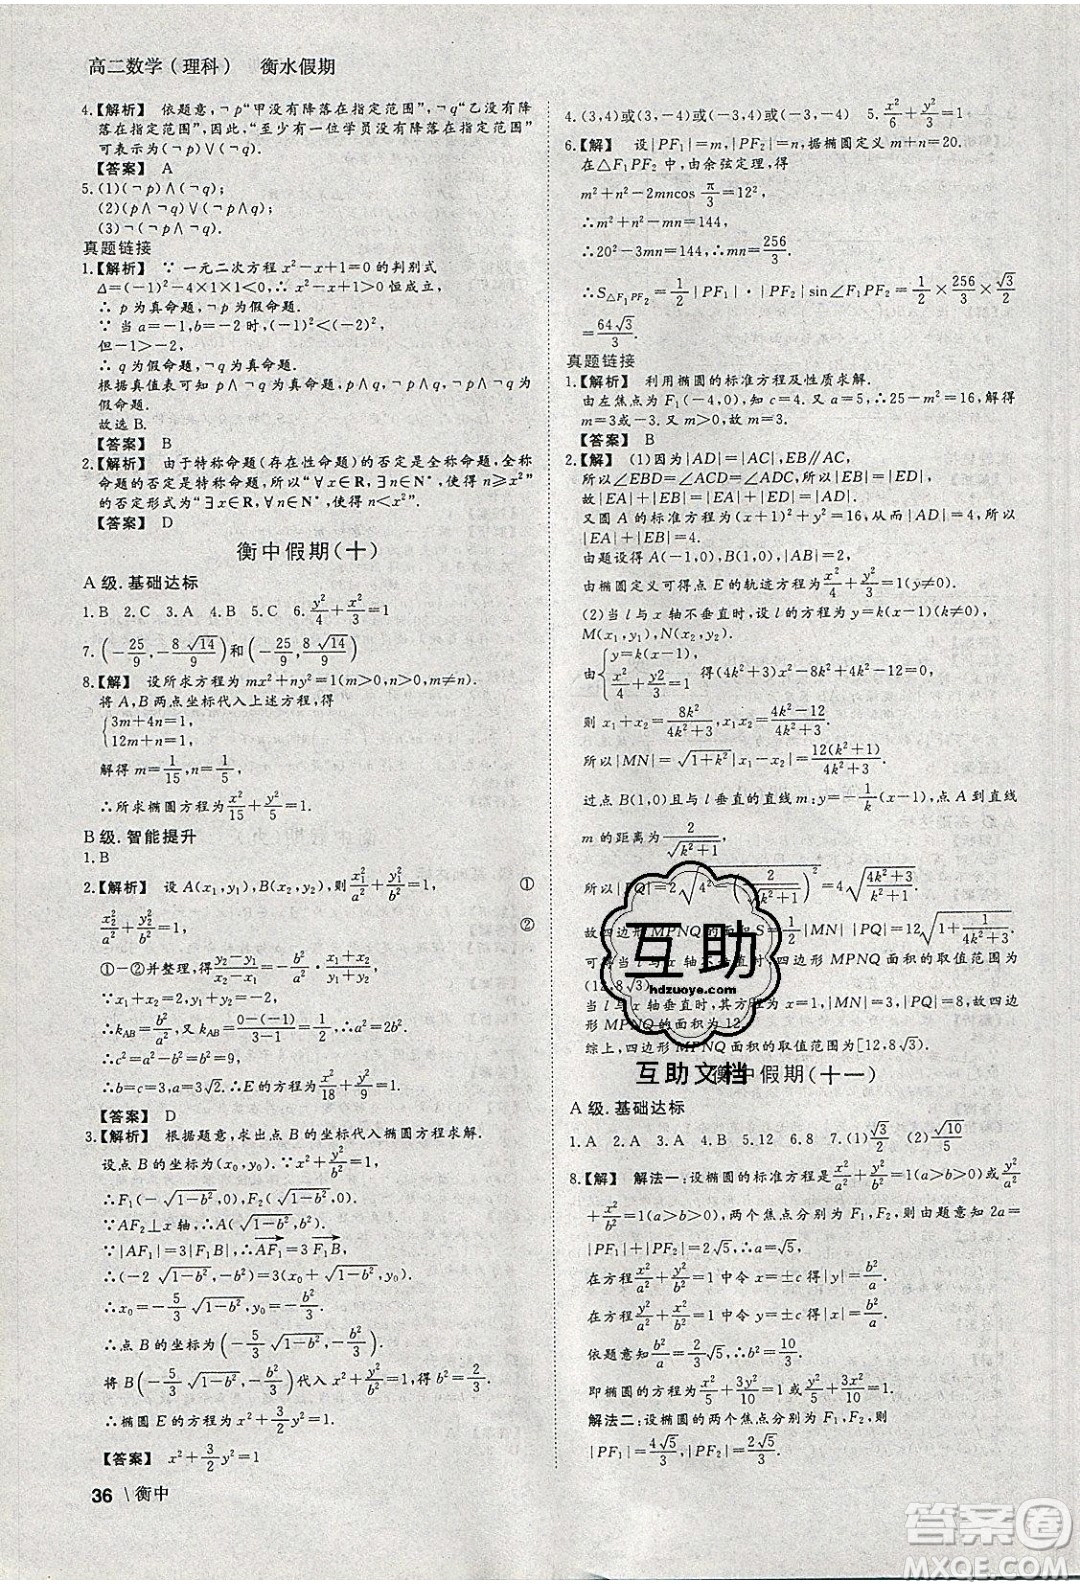 高二数学(理科) 衡水假期
4.【解析】 依题意,¬p“甲没有降落在指定范围”,¬q“乙没有降
落在指定范围”,因此.“至少有一位学员没有降落在指定范围”
可表示为(¬p)∨(¬q).
【答案】 A
5.(1)(¬p)∧(¬q);
(2)(p∧¬q)∨(¬p∧q);
(3)¬(¬p∧¬q).
真题链接
1.【解析】 ∵一元二次方程x²-x+1=0的判别式
Δ=(-1)²-4×1×1<0,∴x²-x+1>0恒成立,
∴p为真命题,¬p为假命题.
∵当a=-1,b=-2时,(-1)²<(-2)²,
但-1>-2,
∴q为假命题,¬q为真命题.
根据真值表可知p∧¬q为真命题,p∧q,¬p∧q,¬p∧¬q为
假命题.
故选B.
【答案】 B
2.【解析】 由于特称命题(存在性命题)的否定是全称命题,全称
命题的否定是特称命题,所以“∀x∈R,∃n∈N*,使得n≥x²”
的否定形式为“∃x∈R,∀n∈N*,使得n<x²”.
【答案】 D
衡中假期(十)
A级.基础达标
1.B 2.C 3.A 4.B 5.2 6.y²/4+x²/3=1
7.(-25/9,-8√14/9)和(-25/9,8√14/9)
8.【解】 设所求方程为mx²+ny²=1(m>0,n>0,m≠n).
将A,B两点坐标代入上述方程,得
{3m+4n=1,
12m+n=1,
解得m=1/15,n=1/5.
∴所求椭圆方程为x²/15+y²/5=1
B级.智能提升
1.B
2.【解析】 设A(x₁,y₁),B(x₂,y₂),则x₁²/a²+y₁²/b²=1, ①
x₂²/a²+y₂²/b²=1. ②
①-②并整理,得y₂-y₁/x₂-x₁=-b²/a²·x₁+x₂/y₁+y₂.
∵x₁+x₂=2,y₁+y₂=-2,
∴kAB=b²/a²,又kAB=0-(-1)/3-1=1/2,∴a²=2b².
∴c²=a²-b²=2b²-b²=b²=9,
∴b=c=3,a²=18,∴E的方程为x²/18+y²/9=1.
【答案】 D
3.【解析】 根据题意,求出点B的坐标代入椭圆方程求解.
设点B的坐标为(x₀,y₀).∵x²+y²/b²=1,
∴F₁(-√1-b²,0),F₂(√1-b²,0).
∵AF₂⊥x轴,∴A(√1-b²,b²).
∵|AF₁|=3|F₁B|,∴AF₁=3F₁B,
∴(-2√1-b²,-b²)=3(x₀+√1-b²,y₀).
∴x₀=-5/3√1-b²,y₀=-b²/3.
∴点B的坐标为(-5/3√1-b²,-b²/3).
将B(-5/3√1-b²,-b²/3)代入x²+y²/b²=1,得b²=2/3.
∴椭圆E的方程为x²+3/2y²=1.
【答案】 x²+3/2y²=1
36\衡中
4.(3,4)或(3,-4)或(-3,4)或(-3,-4) 5.x²/6+y²/3=1
6.【解】 设|PF₁|=m,|PF₂|=n,据椭圆定义m+n=20.
在△F₁PF₂中,由余弦定理,得
m²+n²-2mncos π/3=12²,
∴m²+n²-mn=144,
∴20²-3mn=144,∴mn=256/3,
∴S△F₁PF₂=1/2|PF₁|·|PF₂|sin∠F₁PF₂=1/2×256/3×√3/2
=64√3/3.
真题链接
1.【解析】 利用椭圆的标准方程及性质求解.
由左焦点为F₁(-4,0),知c=4.又a=5,∴25-m²=16,解得
m=3或-3.又m>0,故m=3.
【答案】 B
2.【解】 (1)因为|AD|=|AC|,EB∥AC,
所以∠EBD=∠ACD=∠ADC,所以|EB|=|ED|,
故|EA|+|EB|=|EA|+|ED|=|AD|.
又圆A的标准方程为(x+1)²+y²=16,从而|AD|=4,所以
|EA|+|EB|=4.
由题设得A(-1,0),B(1,0),|AB|=2,
由椭圆定义可得点E的轨迹方程为x²/4+y²/3=1(y≠0).
(2)当l与x轴不垂直时,设l的方程为y=k(x-1)(k≠0),
M(x₁,y₁),N(x₂,y₂).
由{y=k(x-1),x²/4+y2/3=1 得(4k²+3)x²-8k²x+4k²-12=0,
则x₁+x₂=8k²/4k²+3,x₁x₂=4k²-12/4k²+3,
所以|MN|=√1+k²|x₁-x₂|=12(k²+1)/4k²+3.
过点B(1,0)且与l垂直的直线m:y=-1/k(x-1),点A到直线
m的距离为2/√k²+1,
所以|PQ|=2√4²-(2/√k²+1)²=4√4k²+3/k²+1.
故四边形MPNQ的面积S=1/2|MN||PQ|=12√1+1/4k²+3.
可得当l与x轴不垂直时,四边形MPNQ面积的取值范围为
(12,8√3).
当l与x轴垂直时,其方程为x=1,|MN|=3,|PQ|=8,故四边
形MPNQ的面积为12.
综上,四边形MPNQ面积的取值范围为[12,8√3).
衡中假期(十一)
A级.基础达标
1.A 2.A 3.A 4.B 5.12 6.8 7.(1)√3/2 (2)√10/5
8.【解】 解法一:设椭圆的标准方程是x²/a²+y²/b²=1(a>b>0)或y²/a²
+x²/b²=1(a>b>0),两个焦点分别为F₁,F₂,则由题意知2a=
|PF₁|+|PF₂|=2√5,∴a=√5.
在方程x²/a²+y²/b²=1中令x=±c得|y|=b²/a,
在方程y²/a²+x²/b²=1中令y=±c得|x|=b²/a,
依题意知b²/a=2/3√5,∴b²=10/3.
即椭圆的方程为x²/5+3y²/10=1或y²/5+3x²/10=1.
解法二:设椭圆的两个焦点分别为F₁,F₂,则
|PF₁|=4√5/3,|PF₂|=2√5/3.
互助
hdzuoye.com
互助文档
答案圈
MXQE.COM